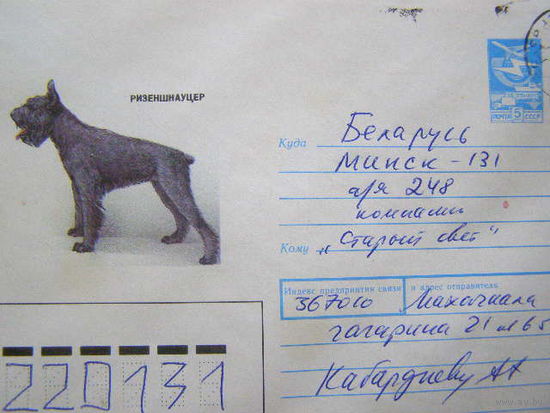 РИЗЕНШНАУЦЕР
ПОЧТА 5 СССР
Куда Беларусь
Минск - 131
а/я 248
компами
Кому „Старый свет"
Индекс предприятия связи и адрес отправителя
367010 Махачкала
гагарина 21 65
Кабардиеву АА
220131